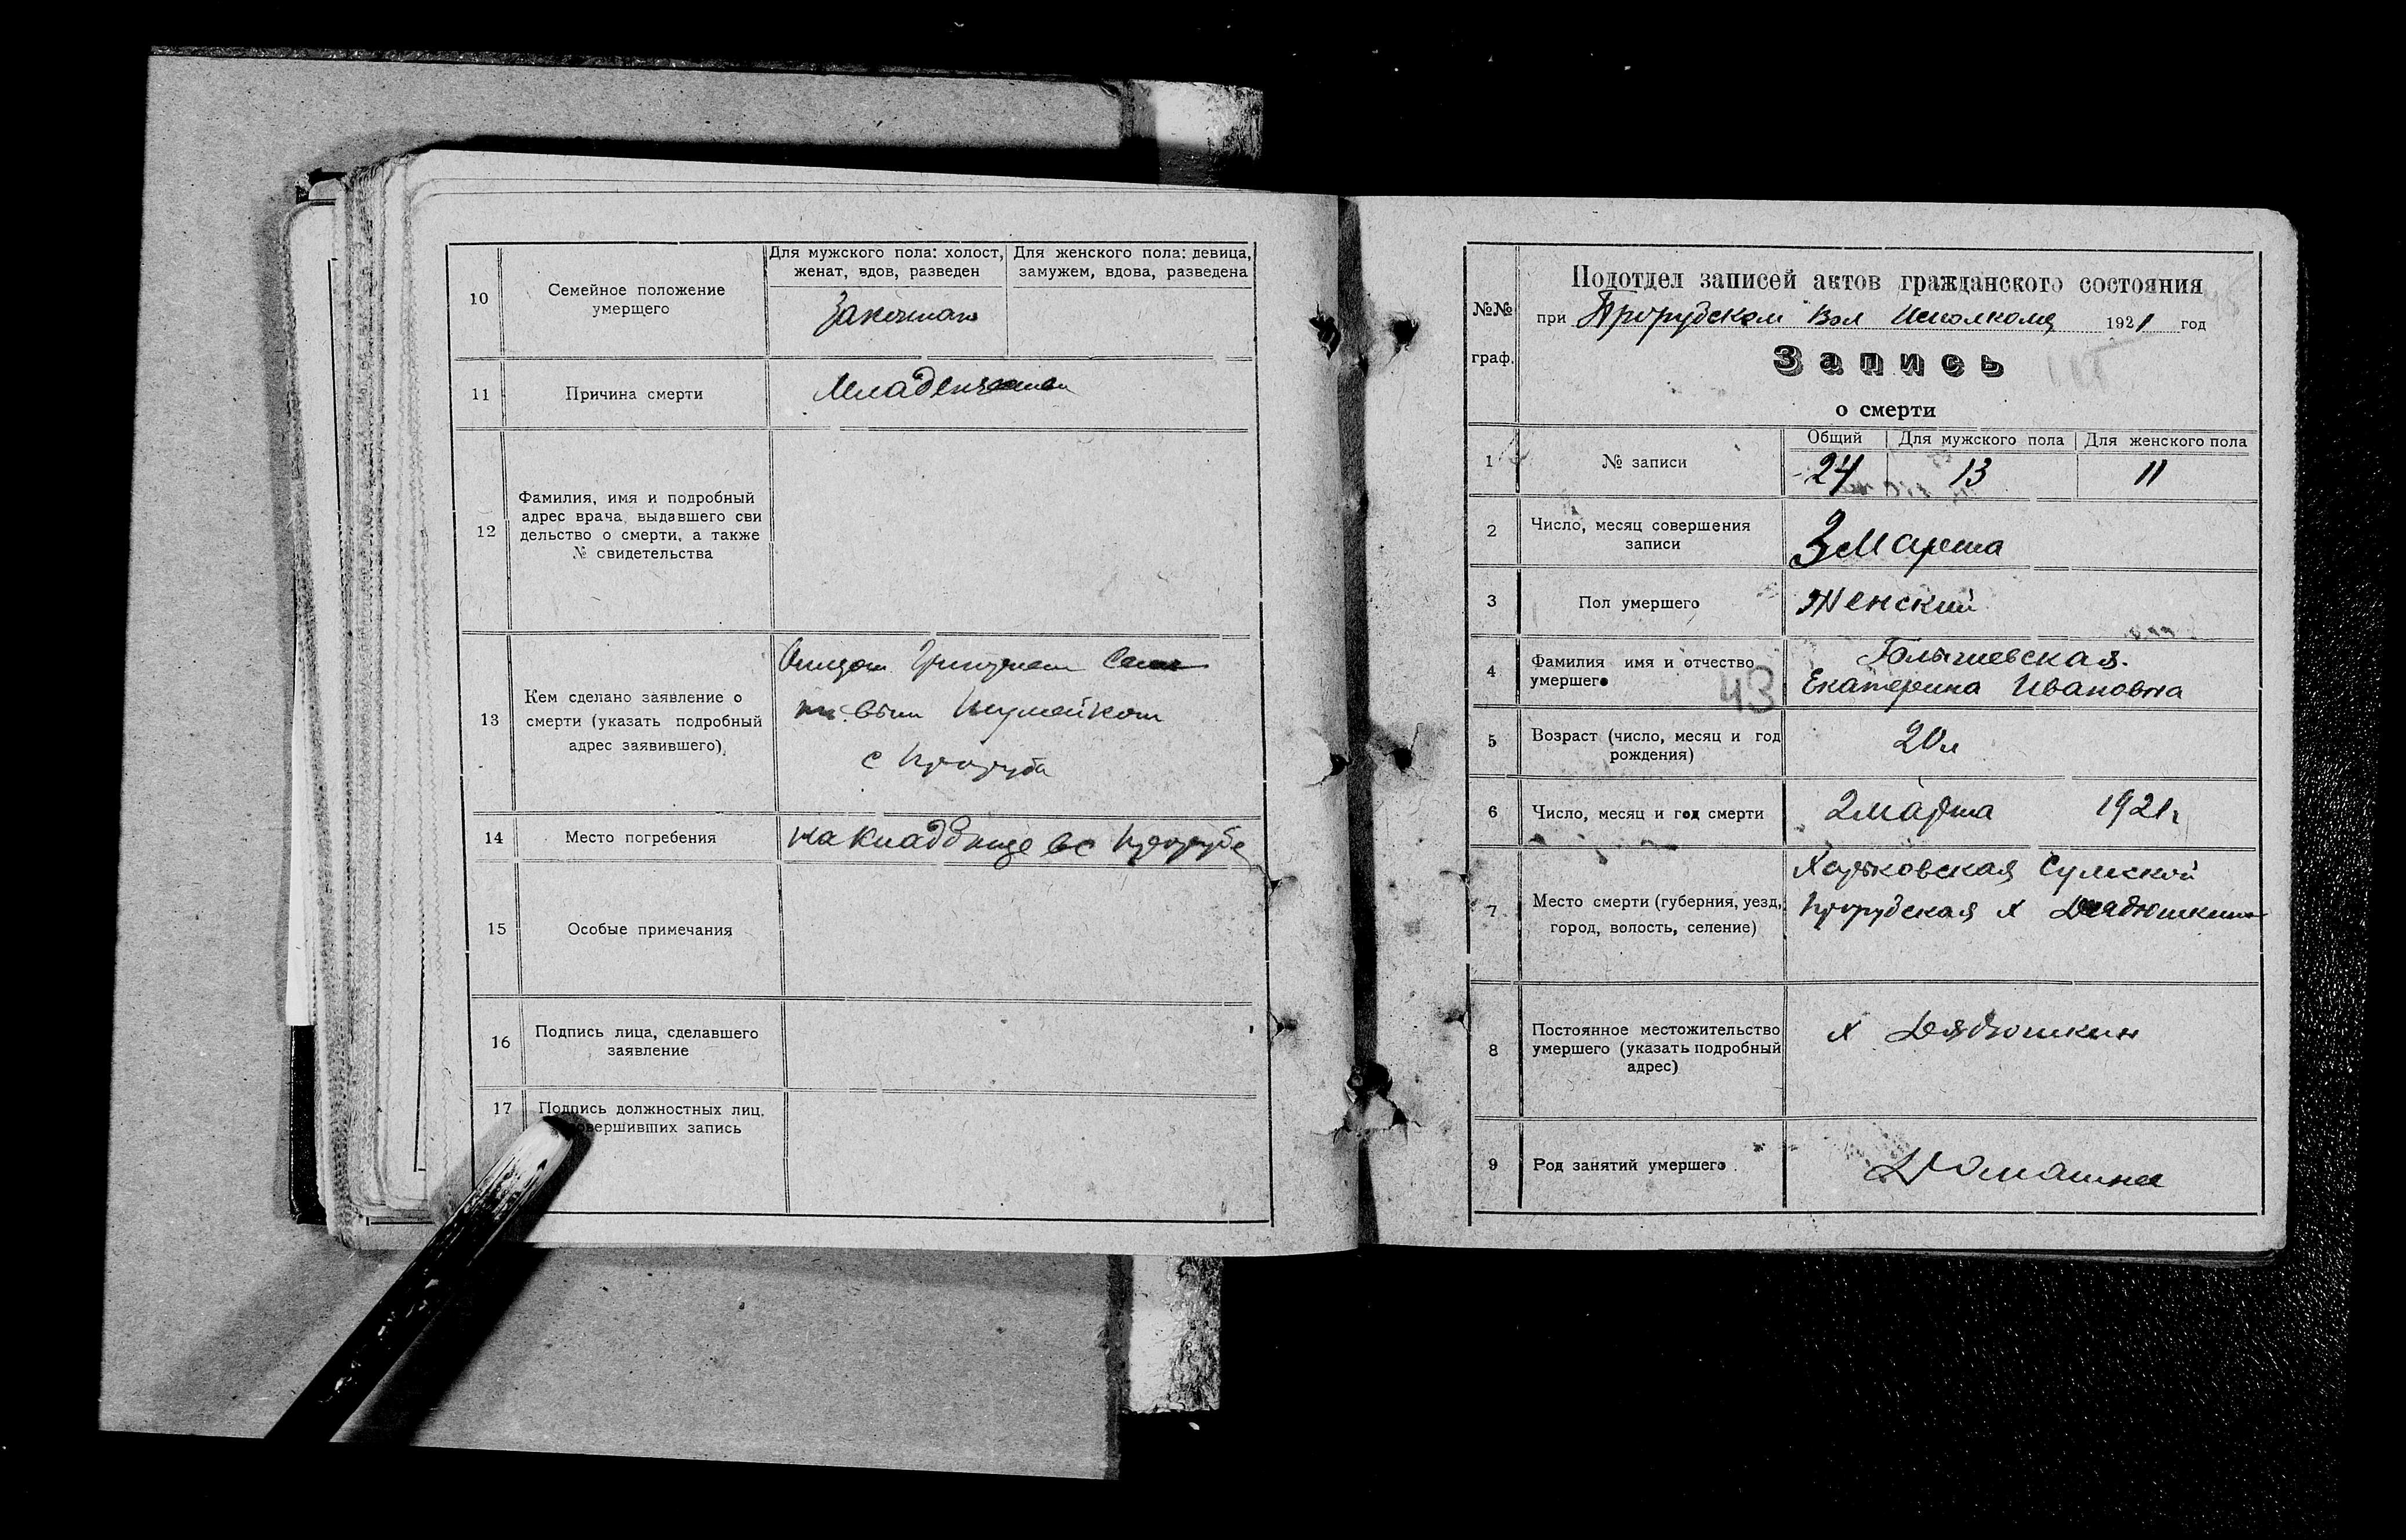 10
Семейное положение
умерщего
Для мужского пола: холост,
женат, вдов, разведен
Для женского пола: девица,
замужем, вдова, разведена
11
Причина смерти
12
Фамилия, имя и подробный
адрес врача, выдавшего сви
дельство о смерти, а также
№ свидетельства
13
Кем сделано заявление о
смерти (указать подробный
адрес заявившего)
с Проруба
14
Место погребения
на кладбище в с Прорубе
15
Особые примечания
16
Подпись лица, сделавшего
заявление
17
Подпись должностных лиц,
совершивших запись
№№
граф.
Подотдел записей актов гражданского состояния
при Прорубском Вол Исполкоме 1921 год
Запись
о смерти
1
№ записи
Общий
Для мужского пола
Для женского пола
24
13
11
2
Число, месяц совершения
записи
3 Марта
3
Пол умершего
Женский
4
Фамилия имя и отчество
умершего
43
Голышевская.
Екатерина Ивановна
5
Возраст (число, месяц и год
рождения)
20 л
6
Число, месяц и год смерти
2 марта 1921 г
7
Место смерти (губерния, уезд,
город, волость, селение)
Харьковская Сумской
Прорубская х Дядюшкин
8
Постоянное местожительство
умершего (указать подробный
адрес)
х Дядюшкин
9
Род занятий умершего
Домашнее